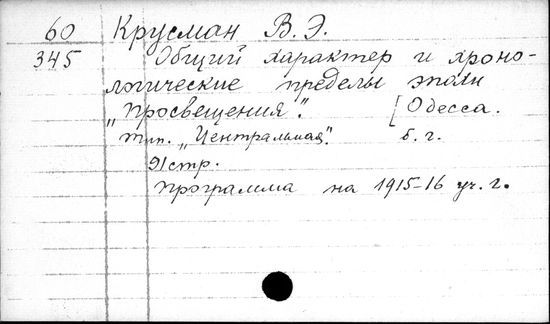 60 Крусман В. Э.
345 Общий характер и хроно-
логические пределы эпохи
„Просвещения“. [Одесса.
тип. „Центральная“. б. г.
91 стр.
Программа на 1915-16 уч. г.